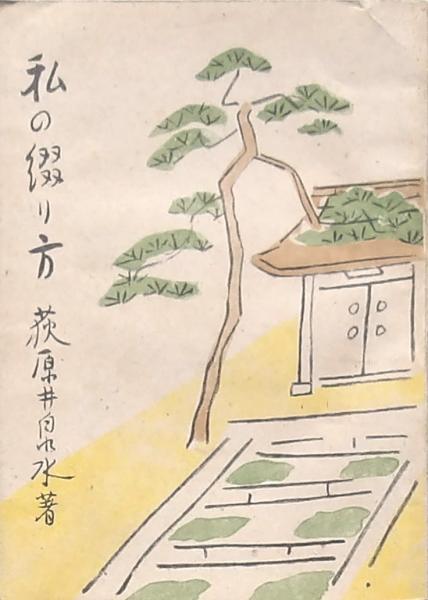 私の綴り方
荻原井泉水著